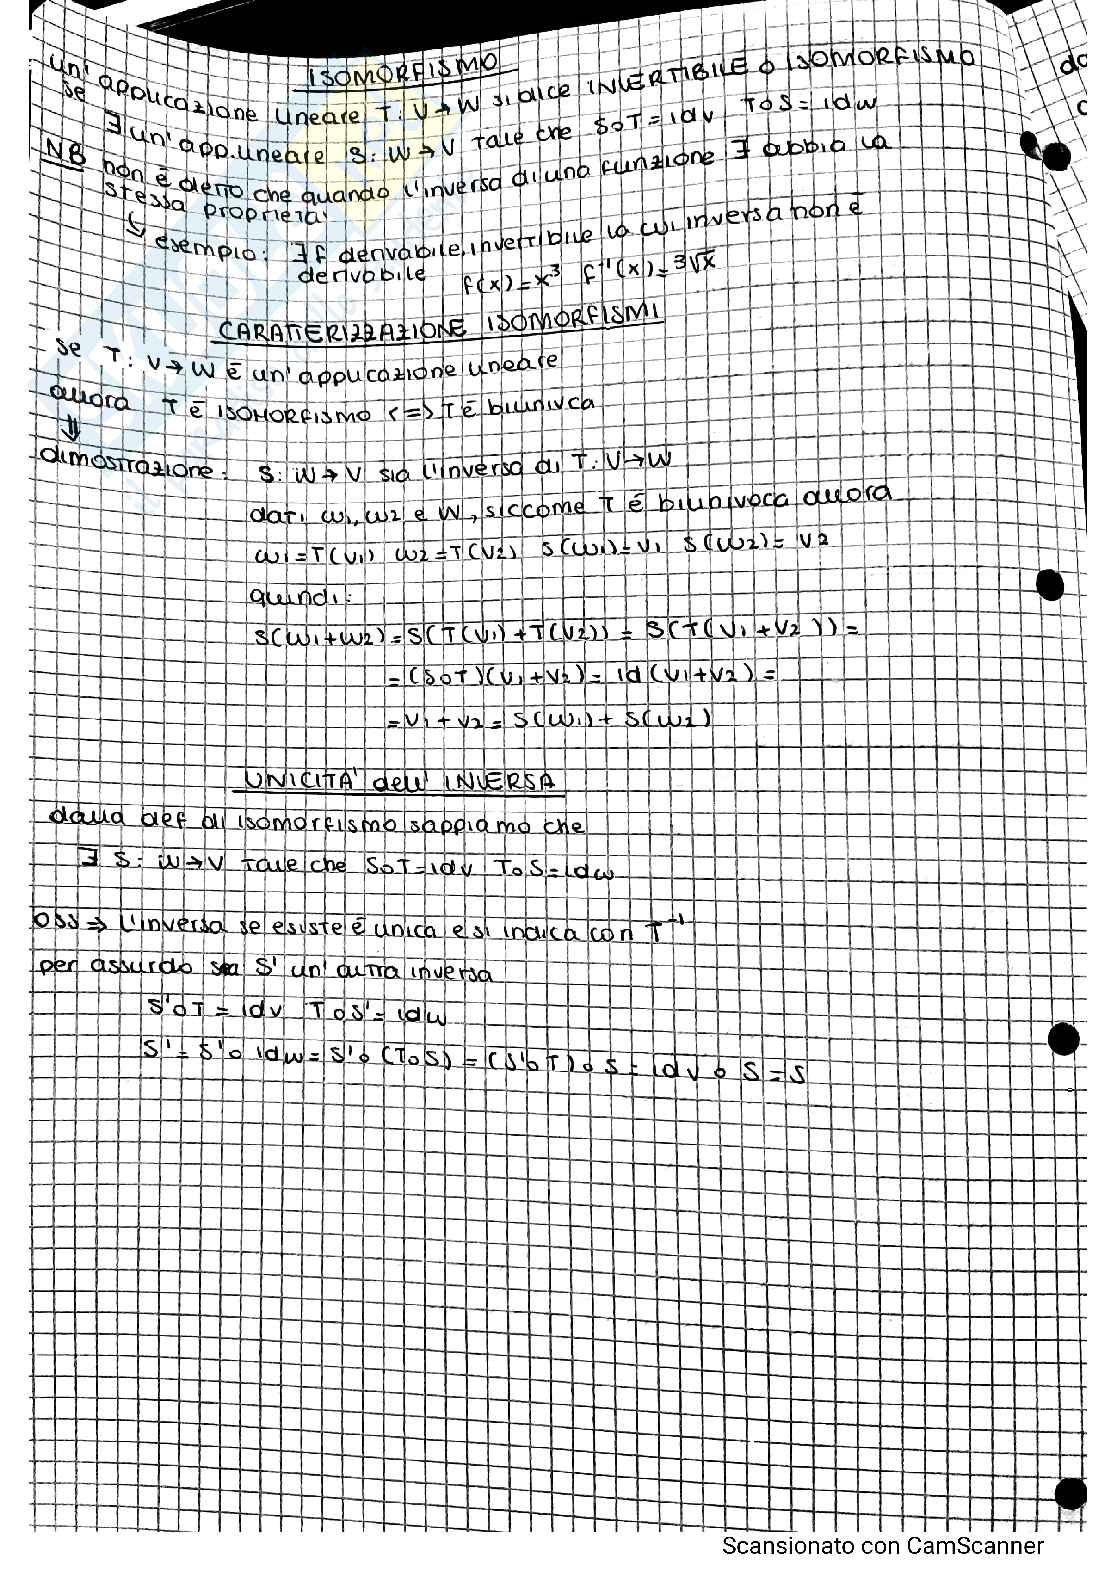 ISOMORFISMO
un'applicazione lineare T: V→W si dice INVERTIBILE o ISOMORFISMO
se ∃ un'app.lineare S: W→V tale che S∘T=idv T∘S=idw
NB non è detto che quando l'inversa di una funzione ∃ abbia la
stessa proprietà
↳ esempio: ∃ f derivabile, invertibile la cui inversa non è
derivabile f(x)=x³ f⁻¹(x)=³√x
CARATTERIZZAZIONE ISOMORFISMI
se T: V→W è un'applicazione lineare
allora T è ISOMORFISMO <=> T è biunivca
⇓
dimostrazione: S: W→V sia l'inversa di T: V→W
dati w₁, w₂ e W, siccome T è biunivoca allora
w₁=T(v₁) w₂=T(v₂) S(w₁)=v₁ S(w₂)=v₂
quindi:
S(w₁+w₂)=S(T(v₁)+T(v₂))=S(T(v₁+v₂))=
=(S∘T)(v₁+v₂)=id(v₁+v₂)=
=v₁+v₂=S(w₁)+S(w₂)
UNICITA' dell'INVERSA
dalla def di isomorfismo sappiamo che
∃ S: W→V tale che S∘T=idv T∘S=idw
OSS⇒ L'inversa se esiste è unica e si indica con T⁻¹
per assurdo sia S' un'altra inversa
S'∘T=idv T∘S'=idw
S'=S'∘idw=S'∘(T∘S)=(S'∘T)∘S=idv∘S=S
Scansionato con CamScanner